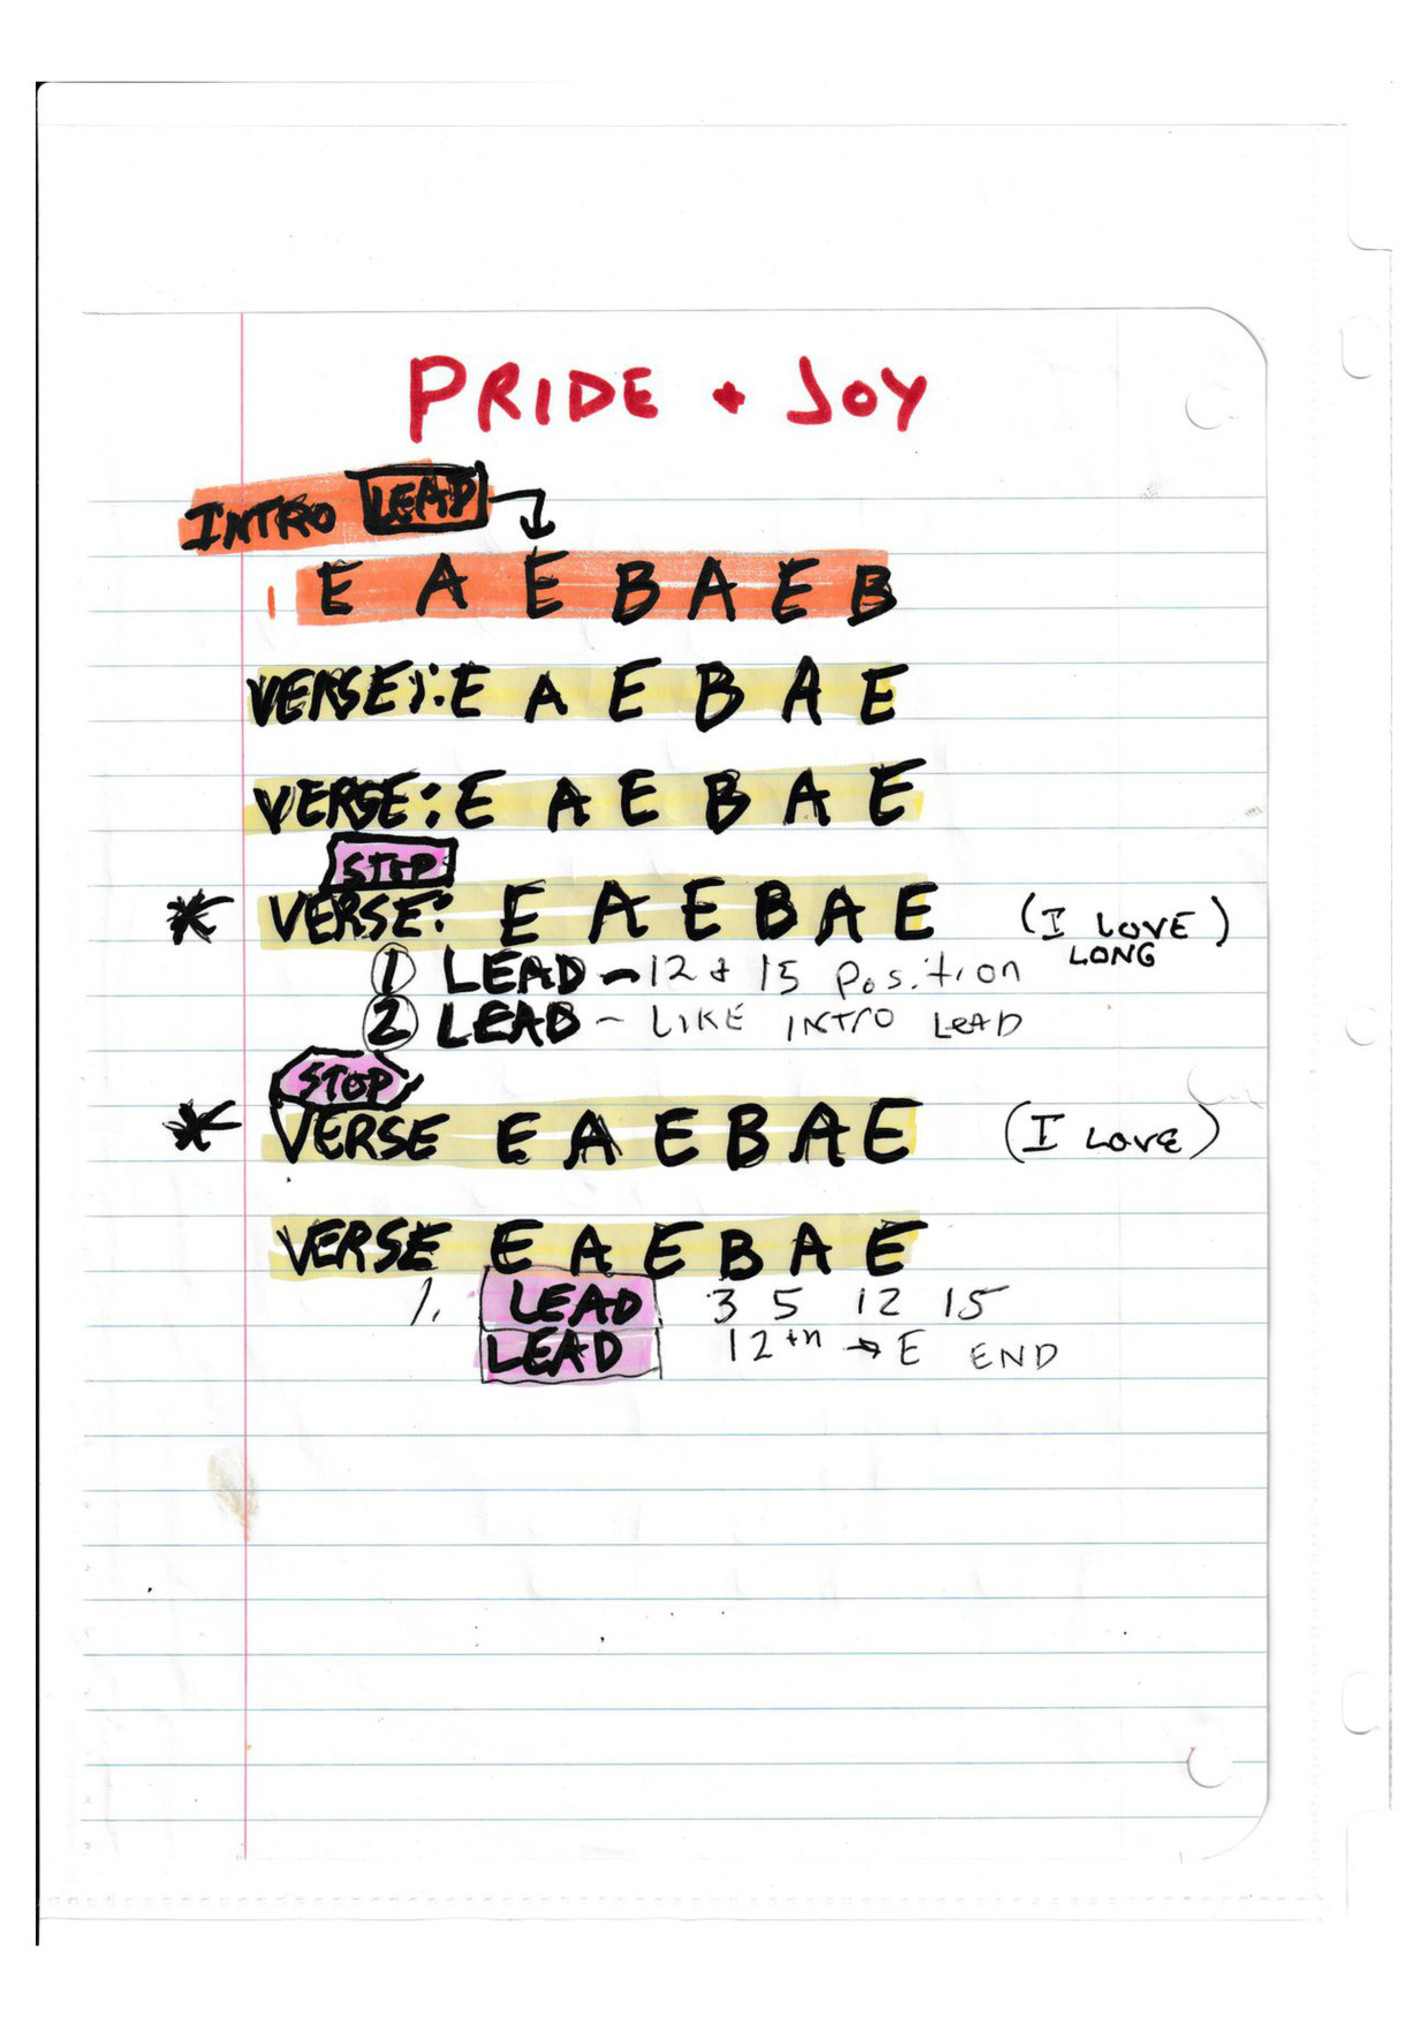 PRIDE + JOY
INTRO LEAD
E A E B A E B
VERSE: E A E B A E
VERSE: E A E B A E
STOP
* VERSE: E A E B A E (I LOVE)
LONG
① LEAD - 12 + 15 Position
② LEAD - LIKE INTRO LEAD
STOP
* VERSE E A E B A E (I LOVE)
VERSE E A E B A E
1. LEAD 3 5 12 15
LEAD 12th → E END